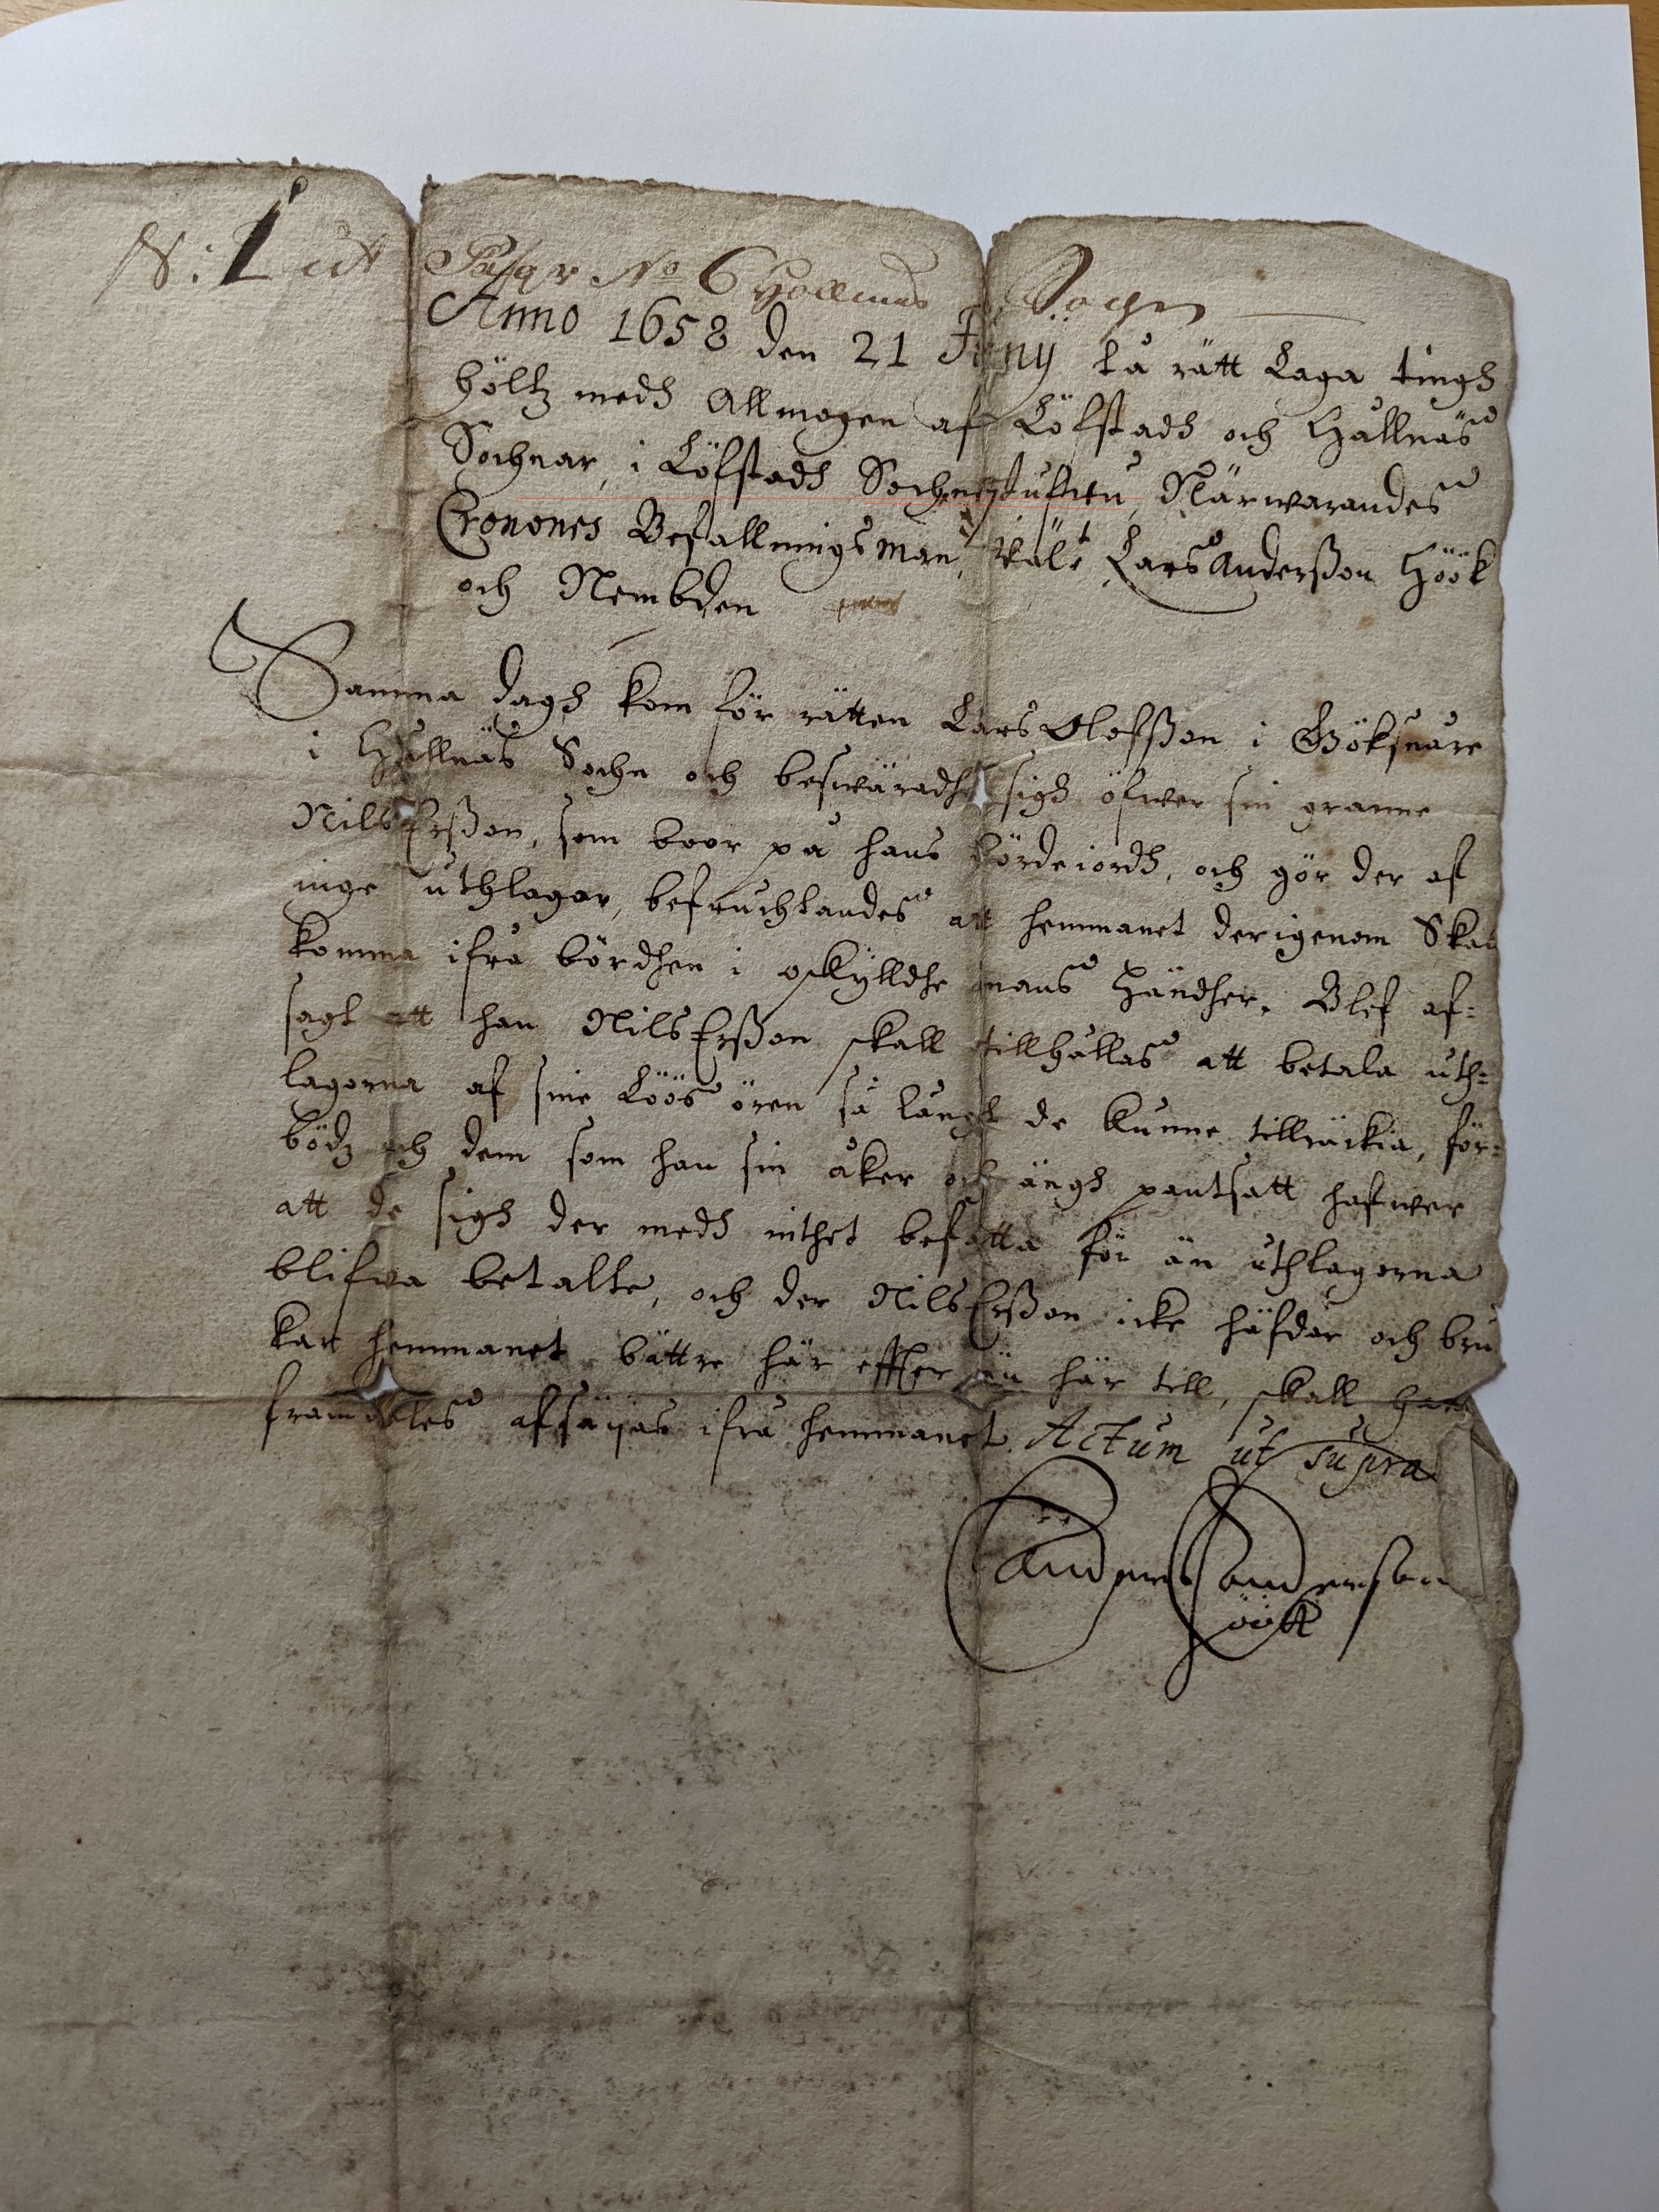 N: 1
No 6 Hollnäs Sochn
Anno 1658 den 21 Junij tå rätt Laga tingh
höltz medh Allmogen af Löfstadh och Hållnäs
Sochnar, i Löfstadh Sochnestufwu, Närwarandes
Cronones Befallningsman, Wäl:t Lars Anderßon Höök
och Nembden
Samma dagh kom för rätten Lars Olofßon i Böksnåre
i Hållnäs Sochn och beswäradhe sigh öfwer sin granne
Nils Erßon, som boor på hans bördeiordh, och gör der af
inge uthlagor, befruchtandes att hemmanet derigenom Skal
komma ifrå bördhen i oskylldhe mans händher. Blef af=
sagt att han Nils Erßon skall tillhållas att betala uth=
lagorna af sine Löös ören så långt de kunne tillräckia, för=
bödz och dem som han sin åker och ängh pantsatt hafwer
att de sigh der medh inthet befatta för än uthlagorna
blifwa betalte, och der Nils Erßon icke häfdar och bru
kar hemmanet bättre här effter än här till, skall han
framdeles afsäijas ifrå hemmanet. Actum ut supra
Anders Anderson
Höök